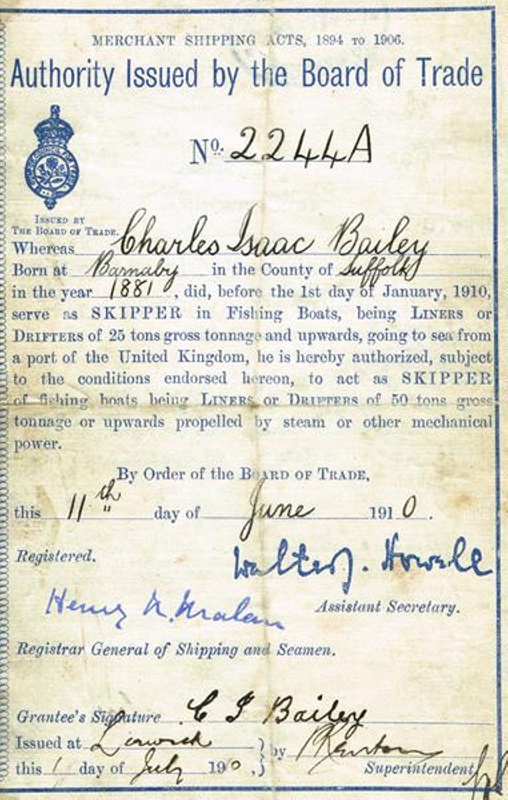 MERCHANT SHIPPING ACTS, 1894 TO 1906.
Authority Issued by the Board of Trade
No. 2244A
ISSUED BY
THE BOARD OF TRADE.
Whereas Charles Isaac Bailey
Born at Barnaby in the County of Suffolk
in the year 1881, did, before the 1st day of January, 1910,
serve as SKIPPER in Fishing Boats, being LINERS or
DRIFTERS of 25 tons gross tonnage and upwards, going to sea from
a port of the United Kingdom, he is hereby authorized, subject
to the conditions endorsed hereon, to act as SKIPPER
of fishing boats being LINERS or DRIFTERS of 50 tons gross
tonnage or upwards propelled by steam or other mechanical
power.
By Order of the BOARD OF TRADE,
this 11th day of June 1910.
Registered. Walter J. Howell
Henry N. Malan Assistant Secretary.
Registrar General of Shipping and Seamen.
Grantee's Signature C I Bailey
Issued at Lerwick } by
this 1 day of July 190, } Superintendent